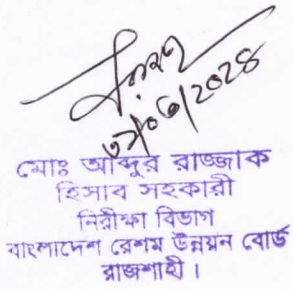 মোঃ আব্দুর রাজ্জাক
হিসাব সহকারী
নিরীক্ষা বিভাগ
বাংলাদেশ রেশম উন্নয়ন বোর্ড
রাজশাহী ।